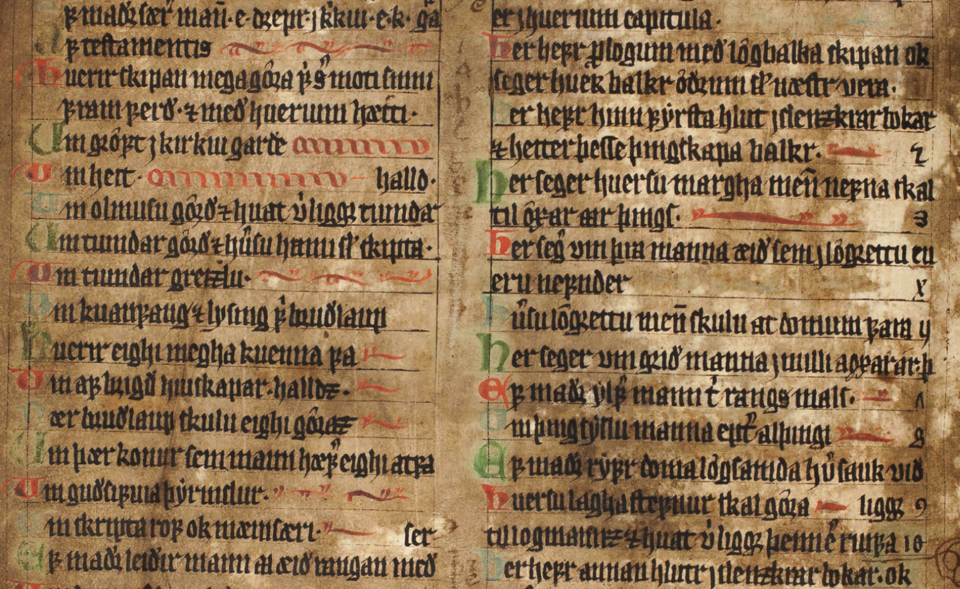 ꝼ maðr særr mann · e · drepr · j k̓kiu · e · k · ga
ꝼ testamentis
huerir skipan mega gỏra þ̓s moti sinni
ꝼram ꝼerð · ⁊ með huerium hætti ·
Um grỏpt j kirkiu garðe
um heit · halld ·
um olmusu gỏrð ⁊ huat v̓ liggr tiundar
Um tiundar gỏrð ⁊ hu̓su hanni sl̓ skipta ·
um tiundar greizlu ·
um kuanꝼang ⁊ lysing ꝼ̓ bruðlaup
huerir eighi megha kuenna ꝼa
um aꝼ brigð hiuskapar · halldz ·
ær bruðlaup skulu eighi gỏraz
Um þær konur sem mann hæꝼ̓ eighi at ꝼa
um guðsiꝼiu a ꝼyrnslur ·
um skripta roꝼ ok mæinsæri · ser
ꝼ maðr leiðir mann at æið rangan með
er j huerium capitula ·
her heꝼr ꝓlogum með lỏgbalka skipan ok
seger huek balkr ỏðrum sl̓ næstr vera ·
er heꝼr hinn ꝼyrsta hlut jslenzkrar bokar
⁊ heiter þesse þingskapa balkr · 2
her seger huersu margha menn neꝼna skal
til ỏxar ar þings · 3
her seg̓ vm þra manna æið sem j lỏgrettu eu
eru neꝼnder
hu̓su lỏgrettu menn skulu at domum ꝼara
her seger vm grið manna j milli
Eꝼ maðr ỳlꝼ̓ manni t̓ rangs mals ·
um þing tỳslu manna ept̓ alþingi 8
Eꝼ maðr rỳꝼr doma lỏgsamda hu̓ sauk við
huersu lagha steꝼnur skal gỏra liggr 9
til logmannz ⁊ huat v̓ liggr þeim e̓ riuꝼa 10
her heꝼr annan hlut jslenzkrar bokar · ok